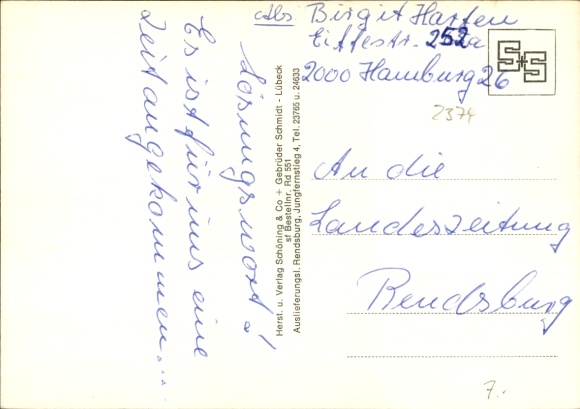 Lösungswort!
Es ist für uns eine
Zeit angekommen...
Abs Birgit Harten
Eiffestr. 252a
2000 Hamburg 26
S+S
2374
An die
Landeszeitung
Rendsburg
7.-
Herst. u. Verlag Schöning & Co + Gebrüder Schmidt - Lübeck
sf Bestellnr. Rd 551
Auslieferungsl. Rendsburg, Jungfernstieg 4, Tel. 23765 u. 24633